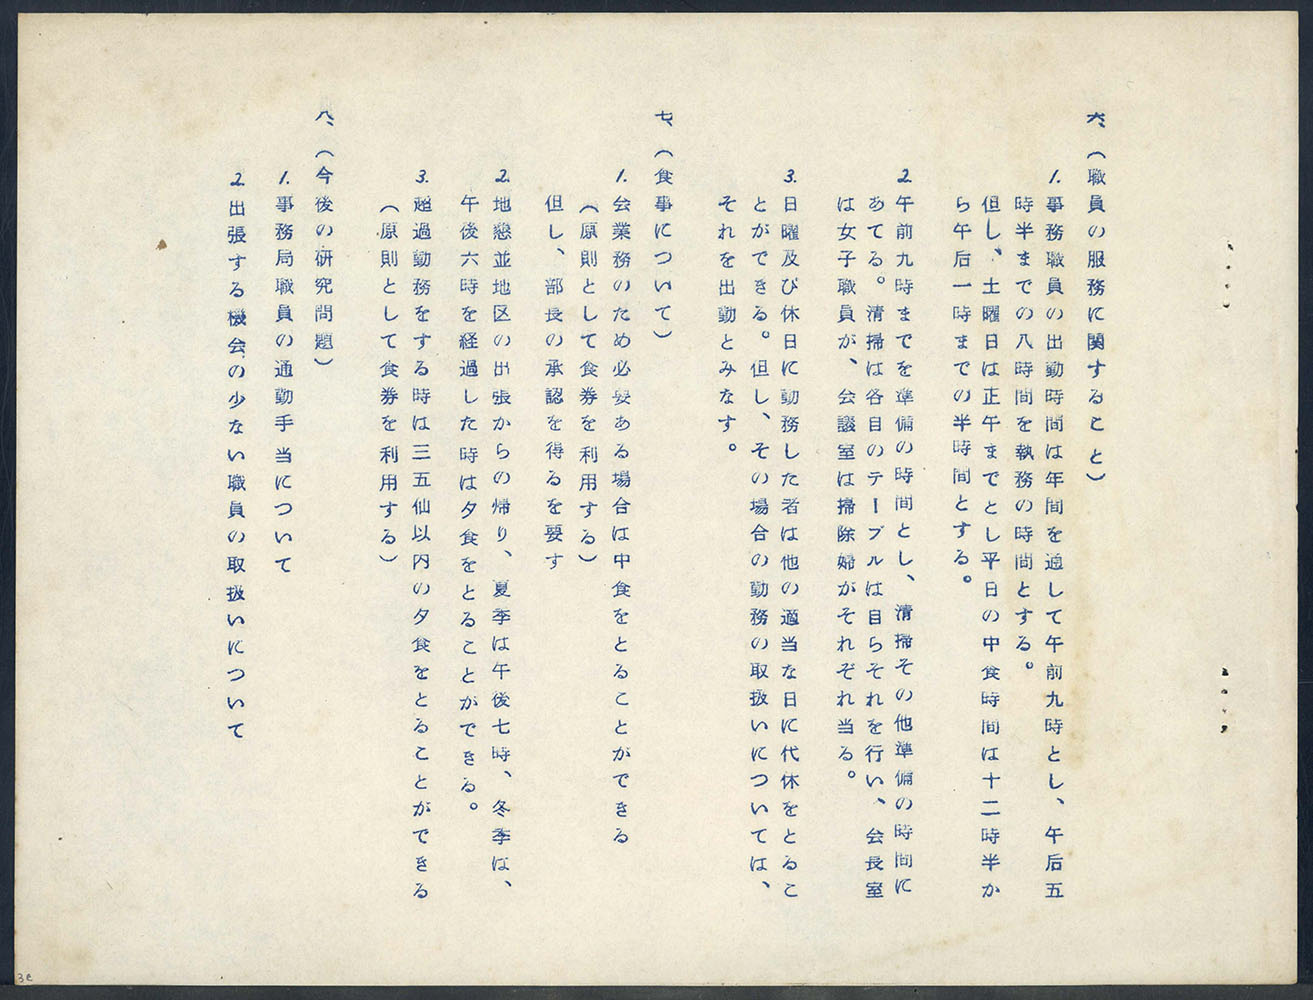 六、(職員の服務に関すること)
1.事務職員の出勤時間は年間を通して午前九時とし、午后五
時半までの八時間を執務の時間とする。
但し、土曜日は正午までとし平日の中食時間は十二時半か
ら午后一時までの半時間とする。
2.午前九時までを準備の時間とし、清掃その他準備の時間に
あてる。清掃は各自のテーブルは自らそれを行い、会長室
は女子職員が、会議室は掃除婦がそれぞれ当る。
3.日曜及び休日に勤務した者は他の適当な日に代休をとるこ
とができる。但し、その場合の勤務の取扱いについては、
それを出勤とみなす。
七、(食事について)
1.会業務のため必要ある場合は中食をとることができる
(原則として食券を利用する)
但し、部長の承認を得るを要す
2.地懇並地区の出張からの帰り、夏季は午後七時、冬季は、
午後六時を経過した時は夕食をとることができる。
3.超過勤務をする時は三五仙以内の夕食をとることができる
(原則として食券を利用する)
八、(今後の研究問題)
1.事務局職員の通勤手当について
2.出張する機会の少ない職員の取扱いについて
3e